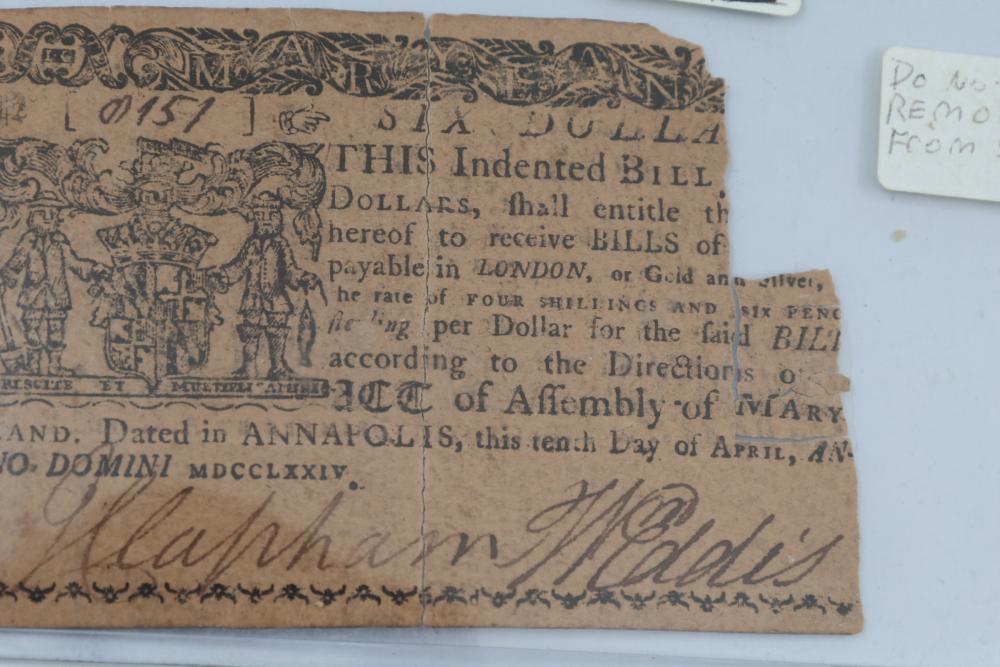 MARYLAN
[ 8151 ] ☞ SIX DOLLA
THIS Indented BILL,
DOLLARS, ſhall entitle th
hereof to receive BILLS of
payable in LONDON, or Gold and Silver,
he rate of FOUR SHILLINGS AND SIX PENC
ſterling per Dollar for the ſaid BILL
according to the Directions o
ACT of Aſſembly of MARY
RESCITE ET MULTIPLICAMINI
AND. Dated in ANNAPOLIS, this tenth Day of APRIL, AN-
NO DOMINI MDCCLXXIV.
Clapham W Eddis
DO NO
REMO
FROM